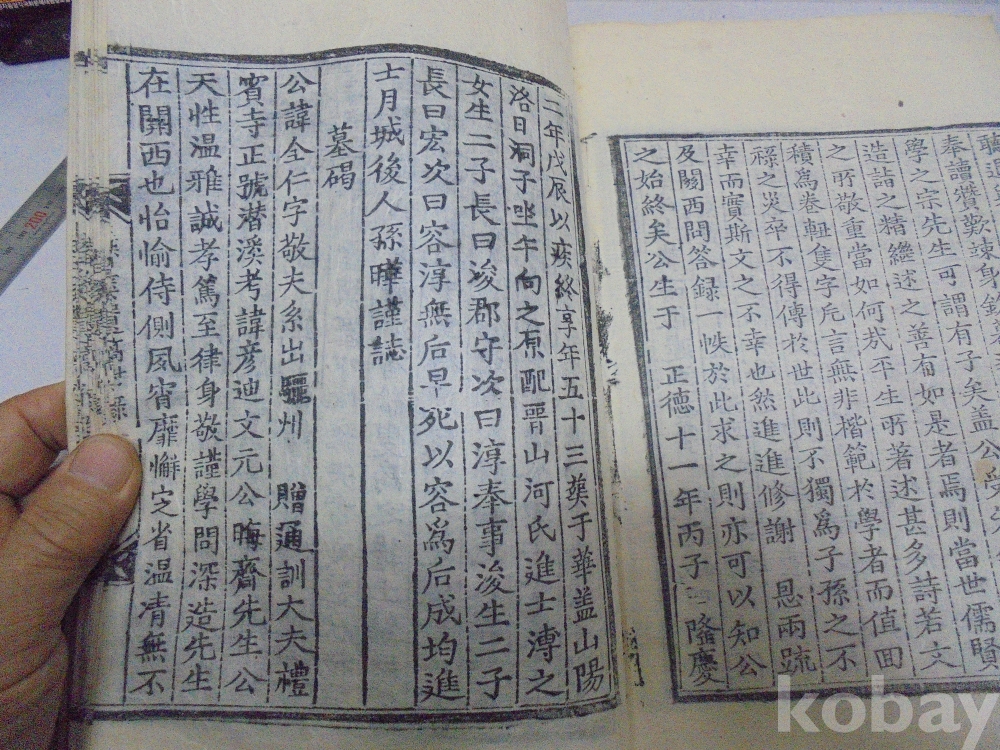 奉讀贊歎竦身
學之宗先生可謂有子矣盖公受
造詣之精繼述之善有如是者焉則當世儒賢
之所敬重當如何㢤平生所著述甚多詩若文
積爲卷軸隻字片言無非楷範於學者而值回
祿之災卒不得傳於世此則不獨爲子孫之不
幸而實斯文之不幸也然進進修謝 恩兩䟽
及關西問答録一帙於此求之則亦可以知公
之始終矣公生于 正德十一年丙子 隆慶
二年戊辰以疾終享年五十三葬于華盖山陽
洛日洞子坐午向之原配晉山河氏進士漙之
女生二子長曰浚郡守次曰淳奉事浚生二子
長曰宏次曰容淳無后早死以容爲后成均進
士月城後人孫曄謹誌
墓碣
公諱全仁字敬夫系出驪州 贈通訓大夫禮
賓寺正號潜溪考諱彦迪文元公晦齋先生公
天性溫雅誠孝篤至律身敬謹學問深造先生
在關西也怡愉侍側夙宵靡懈定省溫凊無不
200
kobay